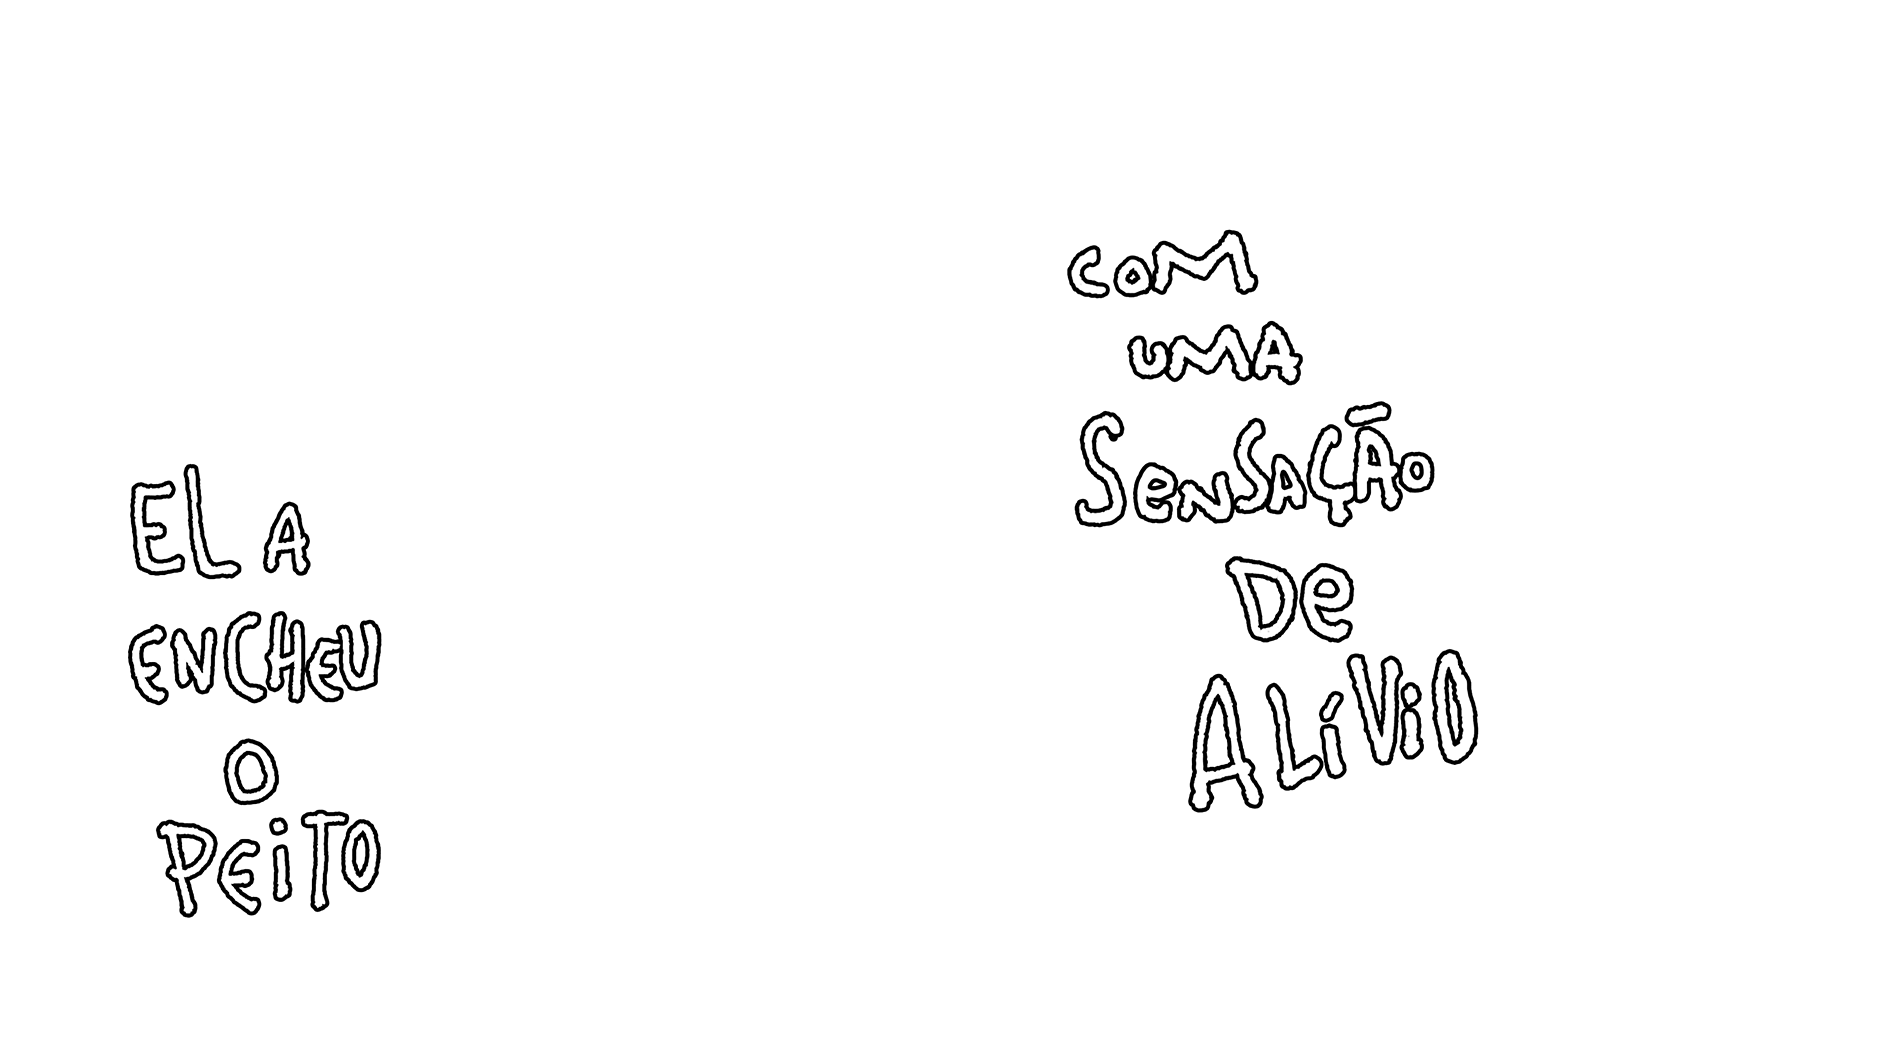 ELA
ENCHEU
O
PEiTO
COM
UMA
SeNSAÇÃO
De
ALíViO